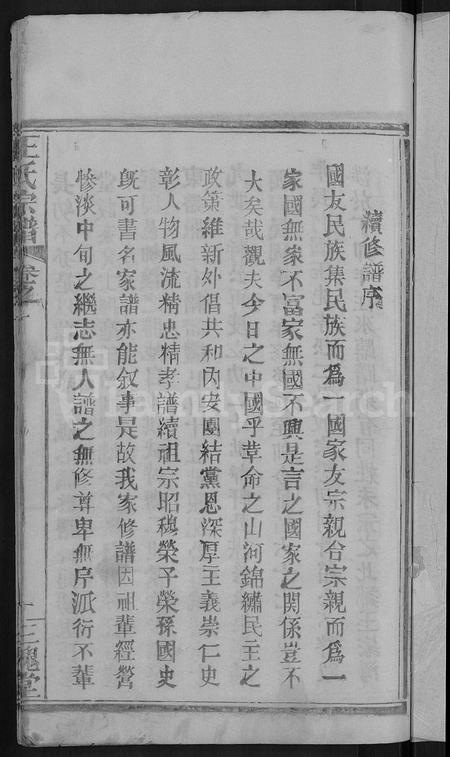 續修譜序
國友民族集民族而為一國家友宗親合宗親而為一
家國無家不富家無國不興是言之國家之關係豈不
大矣哉觀夫今日之中國乎革命之山河錦繡民主之
政策維新外倡共和內安團結黨恩深厚主義崇仁史
彰人物風流精忠精孝譜續祖宗昭穆榮子榮孫國史
既可書名家譜亦能叙事是故我家修譜因祖輩經營
慘淡中旬之繼志無人譜之無修尊卑無序派衍不輩
王氏宗譜 卷之一
三槐堂